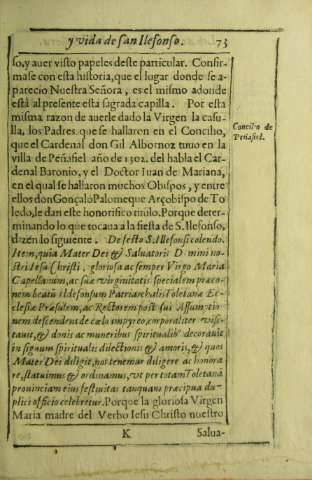 y vida de san Ilefonso. 73
so, y auer visto papeles deste particular. Confir-
mase con esta historia, que el lugar donde se a-
parecio Nuestra Señora, es el mismo adonde
està al presente esta sagrada capilla. Por esta
misma razon de auerle dado la Virgen la casu-
lla, los Padres que se hallaron en el Concilio,
que el Cardenal don Gil Albornoz tuuo en la
villa de Peñafiel año de 1302. del habla el Car-
denal Baronio, y el Doctor Iuan de Mariana,
en el qual se hallaron muchos Obispos, y entre
ellos don Gonçalo Palomeque Arçobispo de To-
ledo, le dan este honorifico titulo. Porque deter-
minando lo que tocaua a la fiesta de S. Ilefonso,
dizen lo siguiente. De festo S. Ilefonsi colendo.
Item, quia Mater Dei & Saluatoris Domini no-
stri Iesu Christi, gloriosa ac semper Virgo Maria
Capellanum, ac suæ virginitatis specialem præco-
nem beatũ Ildefonsum Patriarchalis Toletanæ Ec-
clesiæ Præsulem, ac Rectorem post sui Assumptio-
nem descendent de cælo impyreo, corporaliter visi-
tauit, & donis ac muneribus spiritualibº decorauit
in signum spiritualis dilectionis & amoris, & quos
Mater Dei diligit, nos tenemur diligere ac honora
re, statuimus & ordinamus, vt per totam Toletanã
prouinciam eius festiuitas tanquam præcipua du-
plici officio celebretur. Porque la gloriosa Virgen
Maria madre del Verbo Iesu Christo nuestro
K Salua-
Concilio de
Peñafiel.